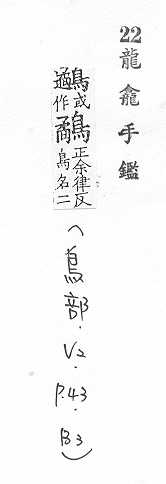 22 龍龕手鑑
或作鷸正余律反鳥名二
(鳥部.V2.P.43.B3)